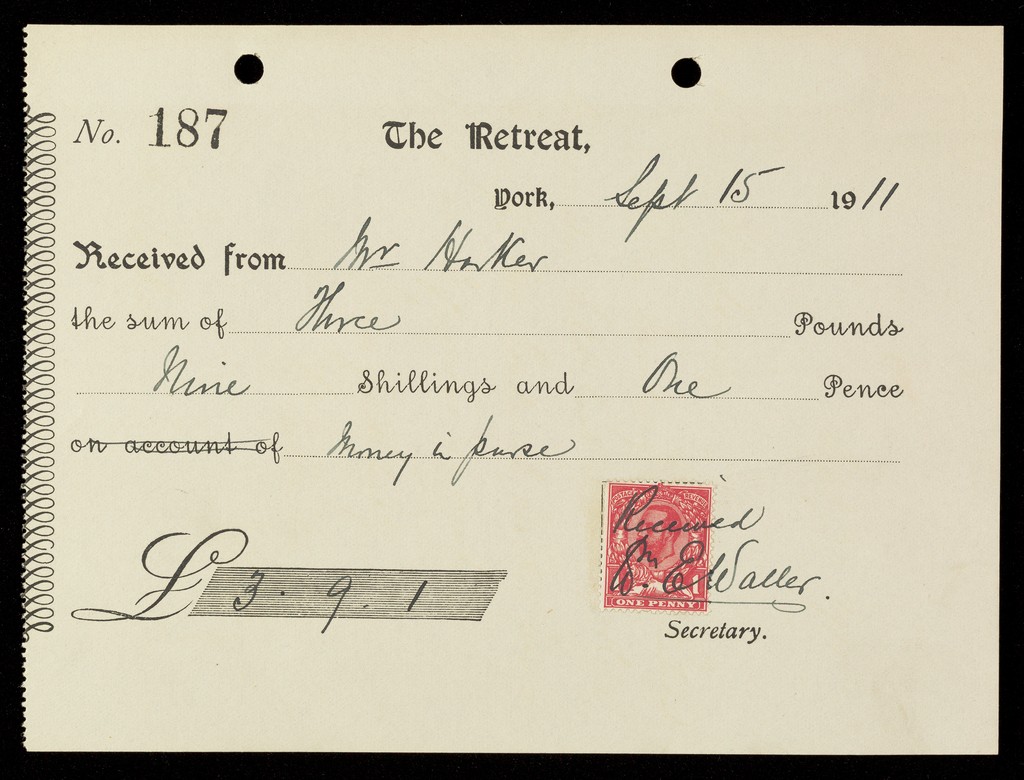 No. 187
The Retreat,
York, Sept 15 1911
Received from Mr Harker
the sum of Three Pounds
Nine Shillings and One Pence
on account of Money in purse
£ 3. 9. 1
POSTAGE REVENUE
Received
Wm. E Waller.
ONE PENNY
Secretary.